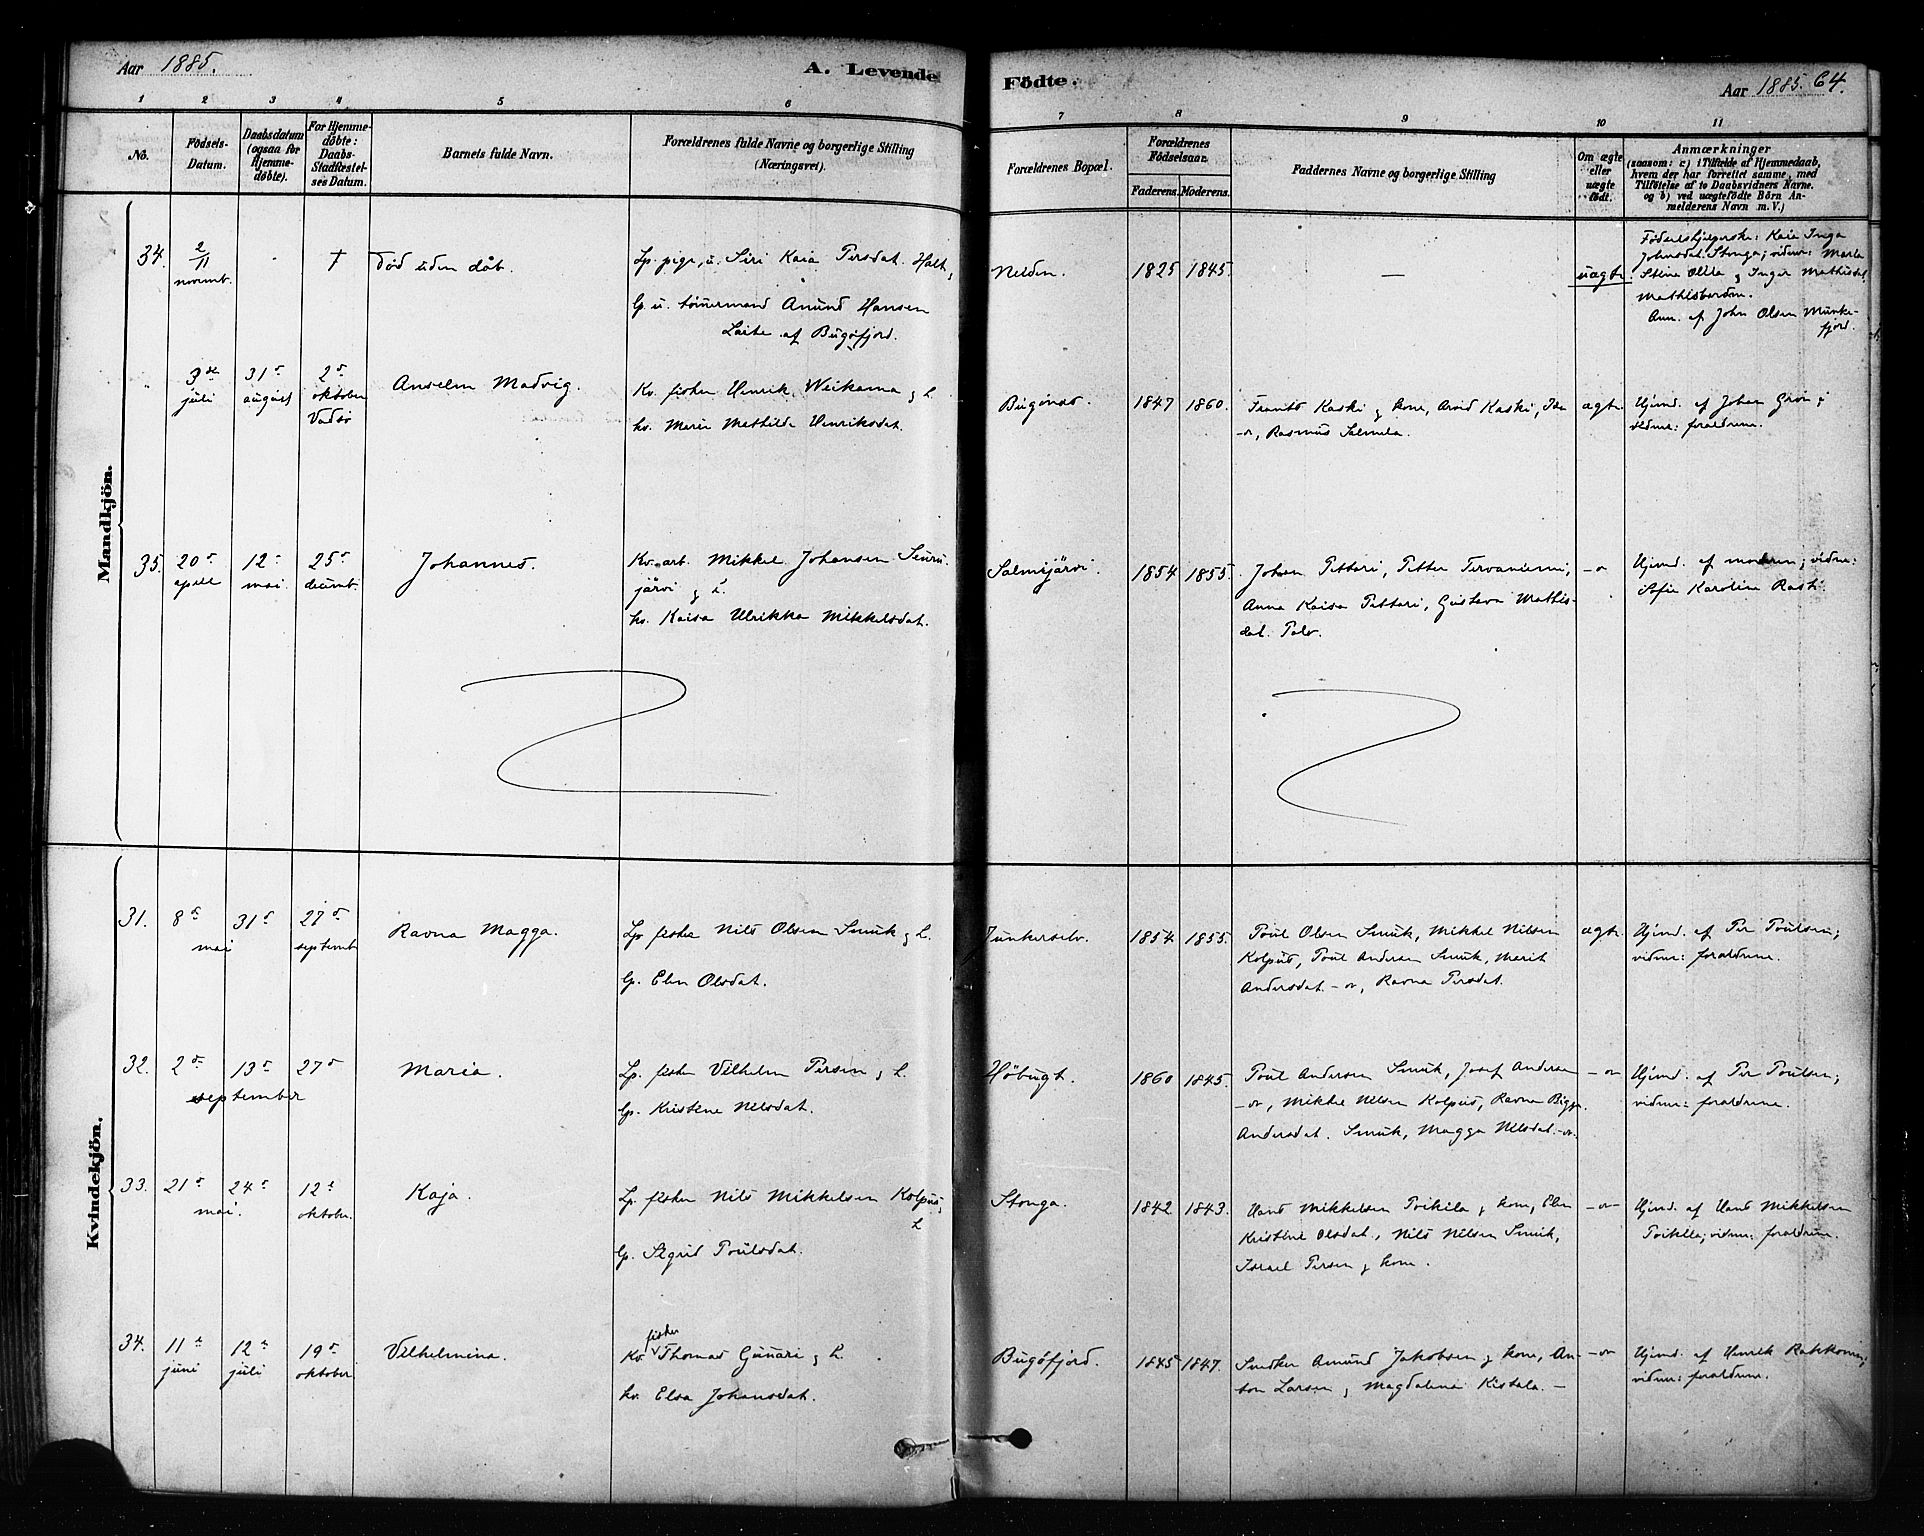 Aar 1885.
A. Levende
Födte.
Aar 1885. 64.
1 2 3 4 5 6 7 8 9 10 11
No.
Födsels-
Datum.
Daabsdatum
(ogsaa for
Hjemme-
døbte).
For Hjemme-
døbte:
Daabs-
Stadfæstel-
ses Datum.
Barnets fulde Navn.
Forældrenes fulde Navne og borgerlige Stilling
(Næringsvei).
Forældrenes Bopæl.
Forældrenes
Födselsaar.
Faderens. Moderens.
Faddernes Navne og borgerlige Stilling
Om ægte
eller
uægte
født.
Anmærkninger
(saasom: a) i Tilfælde af Hjemmedaab,
hvem der har forrettet samme, med
Tilföielse af to Daabsvidners Navne.
og b) ved uægtefödte Börn An-
melderens Navn m. V.)
Mandkjön.
34.
2/11
novemb.
†
Död uden dåb.
Lp. pige, u. Siri Kaia Persdat. Halt,
g. u. tömmermand Anund Hansen
Laite af Bugöfjord.
Neiden.
1825 1845.
—
uægte.
Födselshjelperske: Kaia Inga
Johnsdat. Stonga; vidner: Maria
Stine Olsdat. & Inger Mathisdat.
Ann. af John Olsen Munke-
fjord.
"
3de
juli
31s
august
2d
oktober
Vadsö
Anselm Madvig.
Kv. fisker Henrik Weikama & h.
hv. Marie Mathilde Henriksdat.
Bugönæs
1847 1860.
Kaski & kone, Arvid Kaski, Ida
-"-, Rasmus Salmela.
ægte
Hjemd. af Johan Grön;
vidner: forældrene.
35.
20d
april
12te
mai.
25d
decemb.
Johannes.
Kv. arb. Mikkel Johansen Seuru-
järvi & h.
hv. Kaisa Ulrikka Mikkelsdat.
Salmijärvi.
1854 1855.
Johan Pettari, Petter Tervaniemi,
Anna Kaisa Pettari, Gustava Mathis-
dat. Palo.
-"-
Hjemd. af moderen; vidne:
Sofie Karoline Rasti.
Kvindekjön.
31.
8d
31d
mai
27d
septemb.
Ravna Magga.
Lp. fisker Nils Olsen Smuk & h.
lp. Elen Olsdat.
Junkerselv.
1854 1855.
Poul Olsen Smuk, Mikkel Nilsen
Kolpus, Poul Andersen Smuk, Marit
Andersdat. -"-, Ravna Persdat.
ægte.
Hjemd. af Per Poulsen;
vidner: forældrene.
32.
2d
13d
27d
september
Maria.
Lp. fisker Vilhelm Persen & h.
lp. Kristine Nilsdat.
Höbugt.
1860 1845.
Poul Andersen Smuk, Josef Andersen
-"-, Mikkel Nilsen Kolpus, Ravna Bigga
Andersdat. Smuk, Magga Nilsdat. -"-
-"-
Hjemd. af Per Poulsen;
vidner: forældrene.
33.
21d
24d
mai.
12te
oktober.
Kaja.
Lp. fisker Nils Mikkelsen Kolpus,
h
lp. Sigrid Poulsdat.
Stonga.
1842 1843.
Hans Mikkelsen Poikila & kone, Elen
Kristine Olsdat., Nils Nilsen Smuk,
Israel Persen & kone.
-"-
Hjemd. af Hans Mikkelsen
Poikila; vidner: forældrene.
34.
11te
juni
12te
juli
19d
oktober
Vilhelmina.
fisker
Kv. Thomas Guuari & h.
hv. Elsa Johansdat.
Bugöfjord.
1845 1847.
Snedker Amund Jakobsen & kone, An-
ton Larsen & Magdalena Kistala. —
-"-
Hjemd. af Henrik
vidner: forældrene.